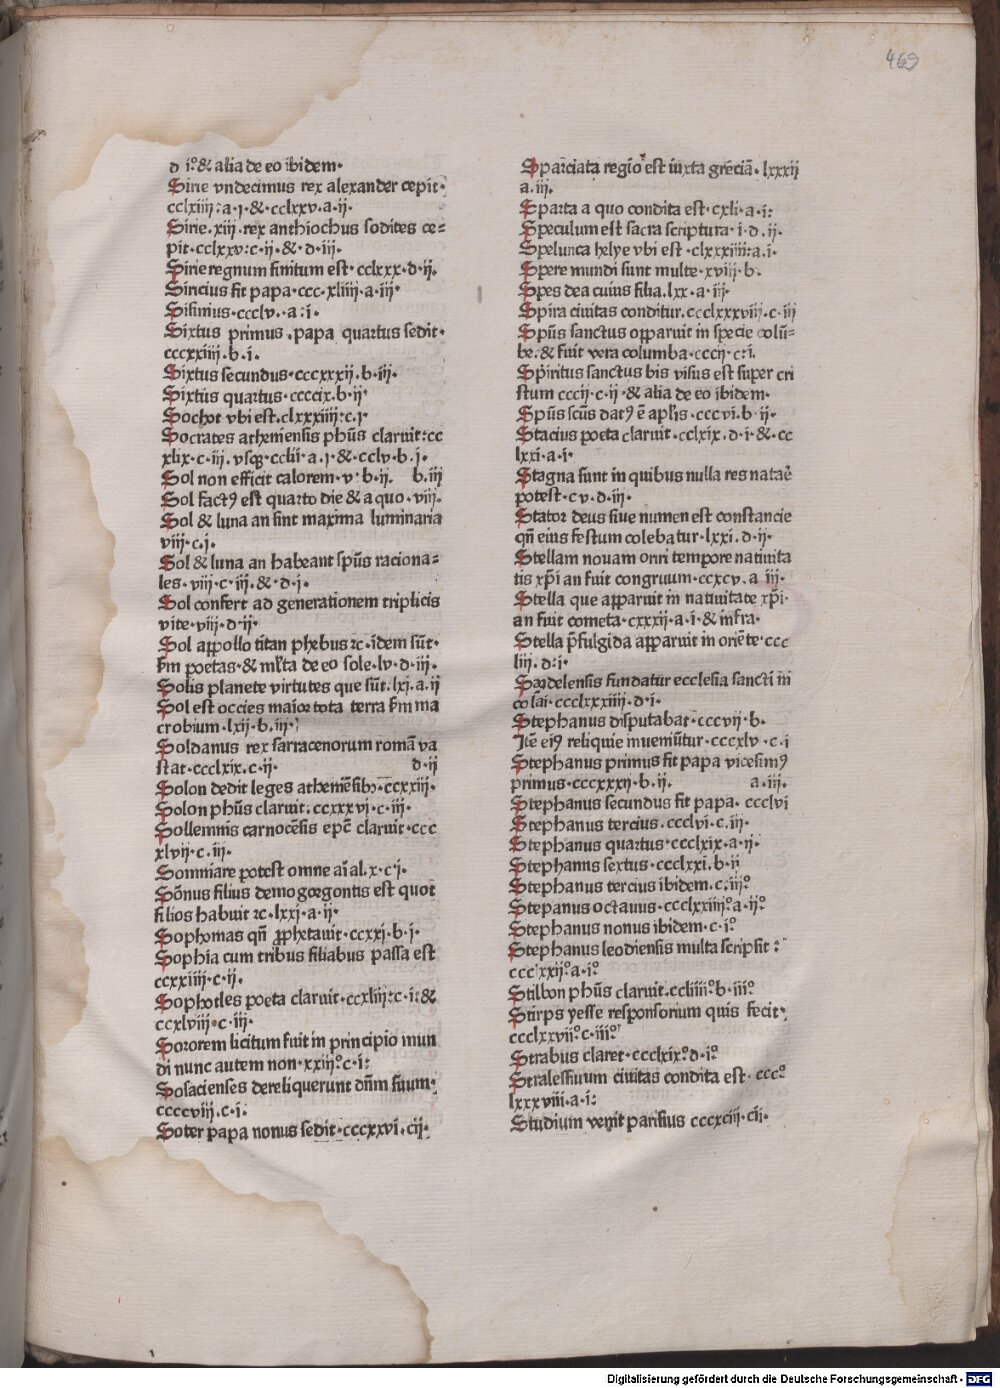 469
d i.⁰ & alia de eo ibidem.
Sirie vndecimus rex alexander cepit.
cclxiiii:a.j.&.cclxxv.a.ij.
Sirie.xiij.rex anthiochus sodites ce=
pit.cclxxv:c.ij.&.d.iij.
Sirie regnum finitum est.cclxxx.d.ij.
Siricius fit papa.ccc.xliiij.a.iij.
Sisinius.ccclv..a:i.
Sixtus primus.papa quartus sedit.
cccxxiiij.b.i.
Sixtus secundus.cccxxxij.b.iij.
Sixtus quartus.ccccix.b.ij.
Sochot vbi est.clxxxiiij.c.j.
Socrates atheniensis phūs claruit:cc
xlix.c.iij.vsqꝫ.cclii.a.j.&.cclv.b.j.
Sol non efficit calorem.v.b.ij. b.iij
Sol factꝰ est quarto die & a quo.viij.
Sol & luna an sint maxima luminaria
viij.c.j.
Sol & luna an habeant spūs raciona=
les.viij.c.iij.&.d.j.
Sol confert ad generationem triplicis
vite.viij.d.ij.
Sol appollo titan phebus ⁊c.idem sūt.
ẜm poetas.& mlta de eo sole.lv.d.iij.
Solis planete virtutes que sūt.lxj.a.ij
Sol est occies maior tota terra ẜm ma
crobium.lxij.b.iij.
Soldanus rex sarracenorum romā va
stat.ccclxix.c.ij. d.ij
Solon dedit leges atheniēsibꝫ.ccxxiij.
Solon phūs claruit.ccxxxvj.c.iij.
Sollemnis carnocēsis epc̄ claruit.ccc
xlvij.c.iij.
Somniare potest omne aīal.x.c.j.
Sōnus filius demogorgontis est quot
filios habuit ⁊c.lxxj.a.ij.
Sophomas qn̄ ꝓphetauit.ccxxj.b.j.
Sophia cum tribus filiabus passa est
ccxxiiij.c.ij.
Sophocles poeta claruit.ccxliij:c.i:&
ccxlviij.c.iij.
Sororem licitum fuit in principio mun
di nunc autem non.xxiij.⁰c.i:
Sosacienses dereliquerunt dn̄m suum.
ccccviij.c.i.
Soter papa nonus sedit.cccxxvi.cij.
Sparciata regio est iuxta greciā.lxxxij
a.iij.
Sparta a quo condita est.cxli.a.i:
Speculum est sacra scriptura.i.d.ij.
Spelunca helye vbi est.clxxxiiij:a.i.
Spere mundi sunt multe.xviij.b.
Spes dea cuius filia.lxx.a.iij.
Spira ciuitas conditur.ccclxxxviij.c.iij
Spūs sanctus opparuit in specie colū=
be.& fuit vera columba.cccij.c:i.
Spiritus sanctus bis visus est super cri
stum cccij.c.ij.& alia de eo ibidem.
Spūs scūs datꝰ ē aplis.cccvi.b.ij.
Stacius poeta claruit.cclxix.d.i.&.cc
lxxi.a.i.
Stagna sunt in quibus nulla res natae᷑
potest.cv.d.iij.
Stator deus siue numen est constancie
qn̄ eius festum colebatur.lxxi.d.ij.
Stellam nouam oriri tempore natiuita
tis xp̄i an fuit congruum.ccxcv.a iij.
Stella que apparuit in natiuitate xp̄i.
an fuit cometa.cxxxij.a.i.& infra.
Stella p̄fulgida apparuit in oriēte.ccc
liij.d:i.
Stephanus disputabat.cccvij.b.
Itē eiꝰ reliquie inueniūtur.cccxlv.c.i
Stephanus primus fit papa vicesimꝰ
primus.cccxxxij.b.ij. a.iij.
Stephanus secundus fit papa.ccclvi
Stephanus tercius.ccclvi.c.iij.
Stephanus quartus.ccclxix.a.ij.
Stephanns sextus.ccclxxi.b.ij
Stephanus tercius ibidem.c.iij.⁰
Stepanus octauus.ccclxxiiij.⁰a.ij.⁰
Stephanus nonus ibidem.c.i.⁰
Stephanus leodiensis multa scripsit:
ccclxxij.⁰a.i.⁰
Stilbon phūs claruit.ccliiij.⁰b.iij.⁰
Stirps yesse responsorium quis fecit.
ccclxxvij.⁰c.iij.⁰
Strabus claret.ccclxix.⁰d.i.⁰
Stralessuum ciuitas condita est.ccc.⁰
lxxxviij.a.i:
Studium venit parisius cccxciij.cij.
Digitalisierung gefördert durch die Deutsche Forschungsgemeinschaft - DFG